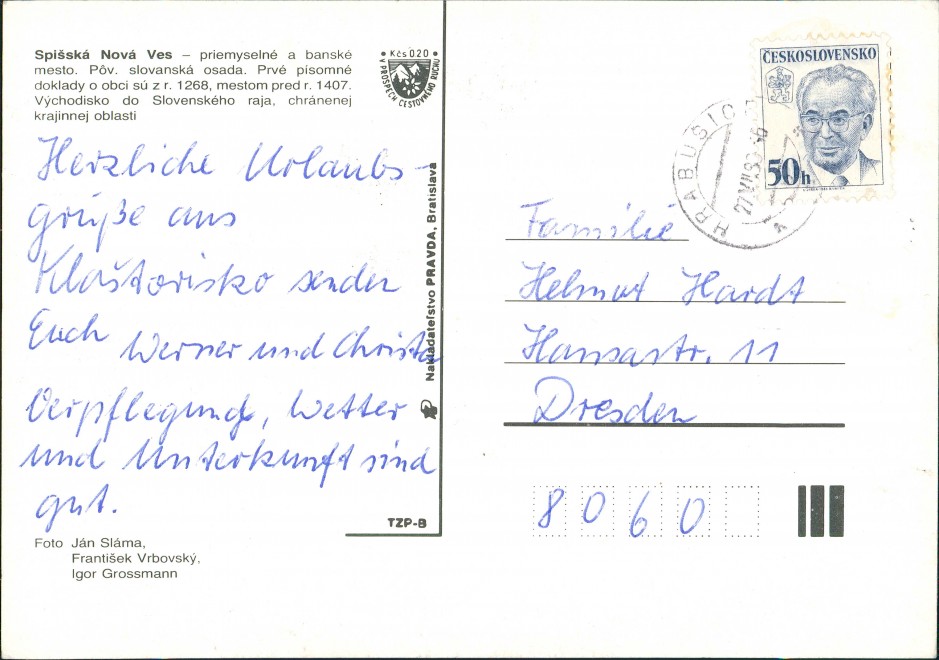 Spišská Nová Ves – priemyselné a banské
mesto. Pôv. slovanská osada. Prvé písomné
doklady o obci sú z r. 1268, mestom pred r. 1407.
Východisko do Slovenského raja, chránenej
krajinnej oblasti
• Kčs 0.20 •
V PROSPECH CESTOVNÉHO RUCHU
Herzliche Urlaubs-
grüße aus
Kláštorisko senden
Euch Werner und Christa
Verpflegung, Wetter
und Unterkunft sind
gut.
Foto Ján Sláma,
František Vrbovský,
Igor Grossmann
Nakladateľstvo PRAVDA, Bratislava
TZP-B
ČESKOSLOVENSKO
50h
HRABUŠICE
Familie
Helmut Hardt
Hansastr. 11
Dresden
8060